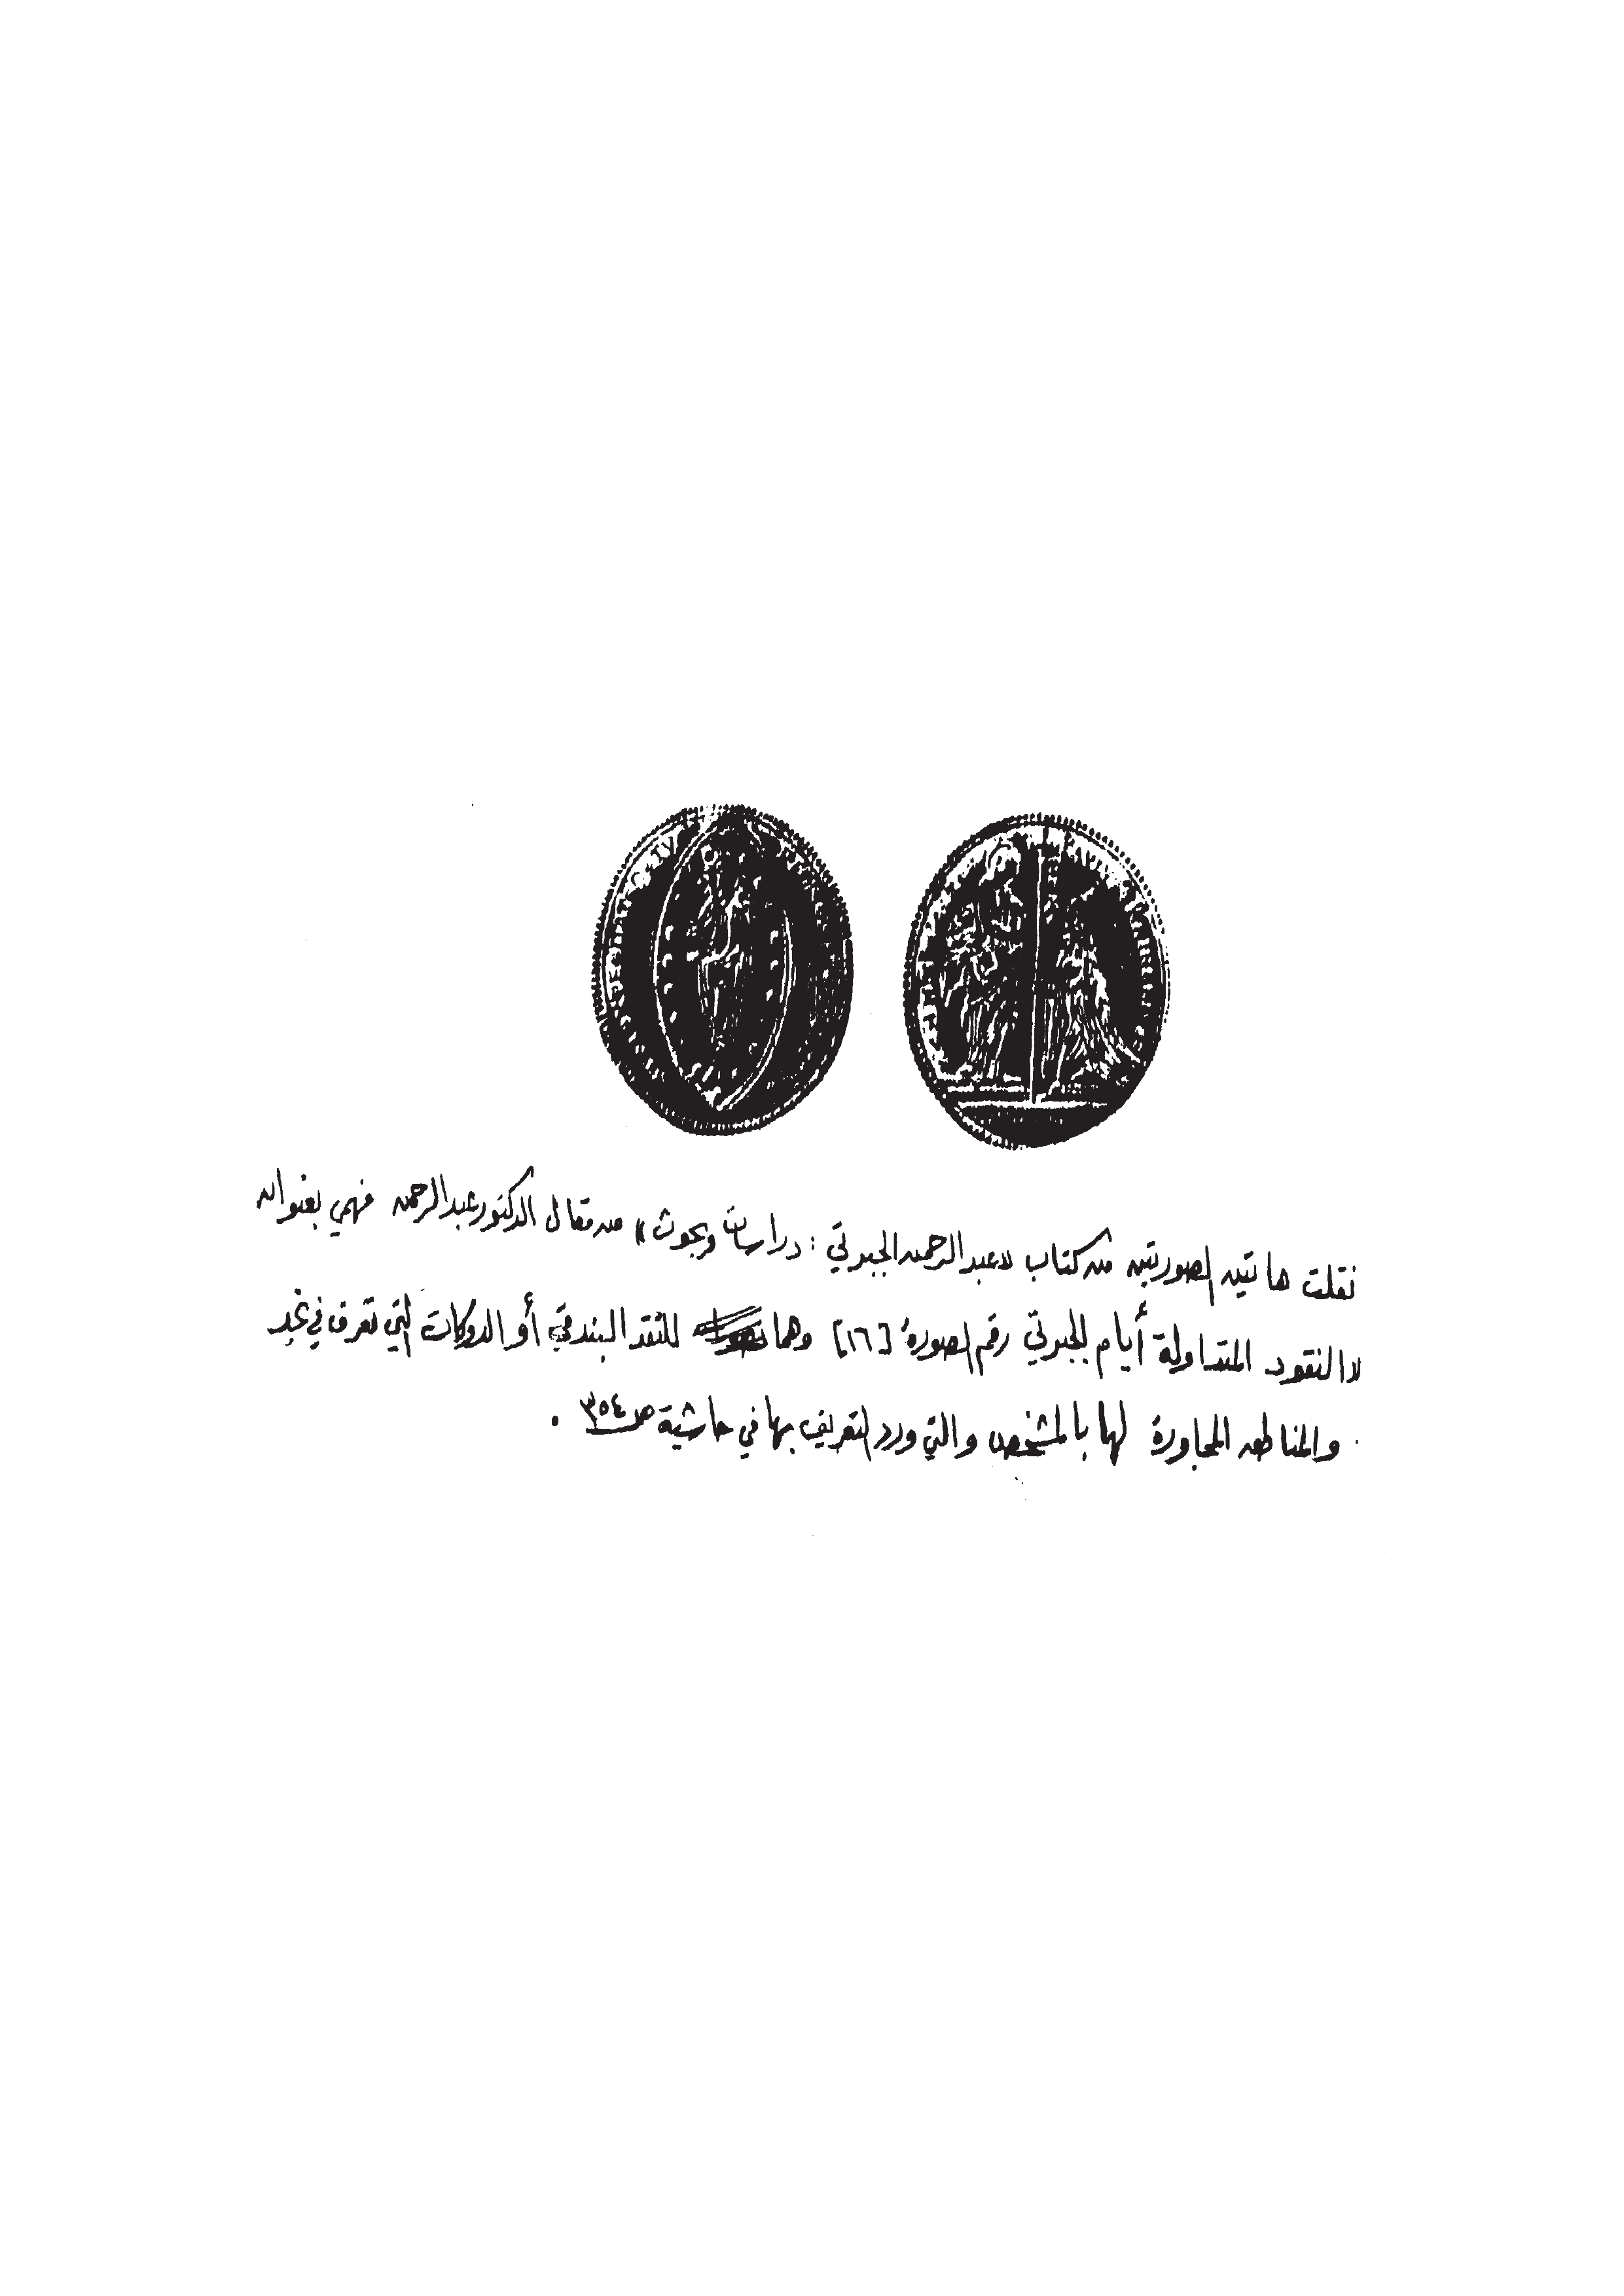 نقلت هاتين الصورتين من كتاب «عبد الرحمن الجبرتي : دراسات وبحوث» من مقال الدكتور عبد الرحمن فهمي بعنوان
«النقود المتداولة أيام الجبرتي رقم الصورة [١٦] وهما للنقد البندقي أو الدوكات التي تعرف في نجد
والمناطق المجاورة لها بالمشخص والتي ورد التعريف بها في حاشية صـ ٣٥٤ .